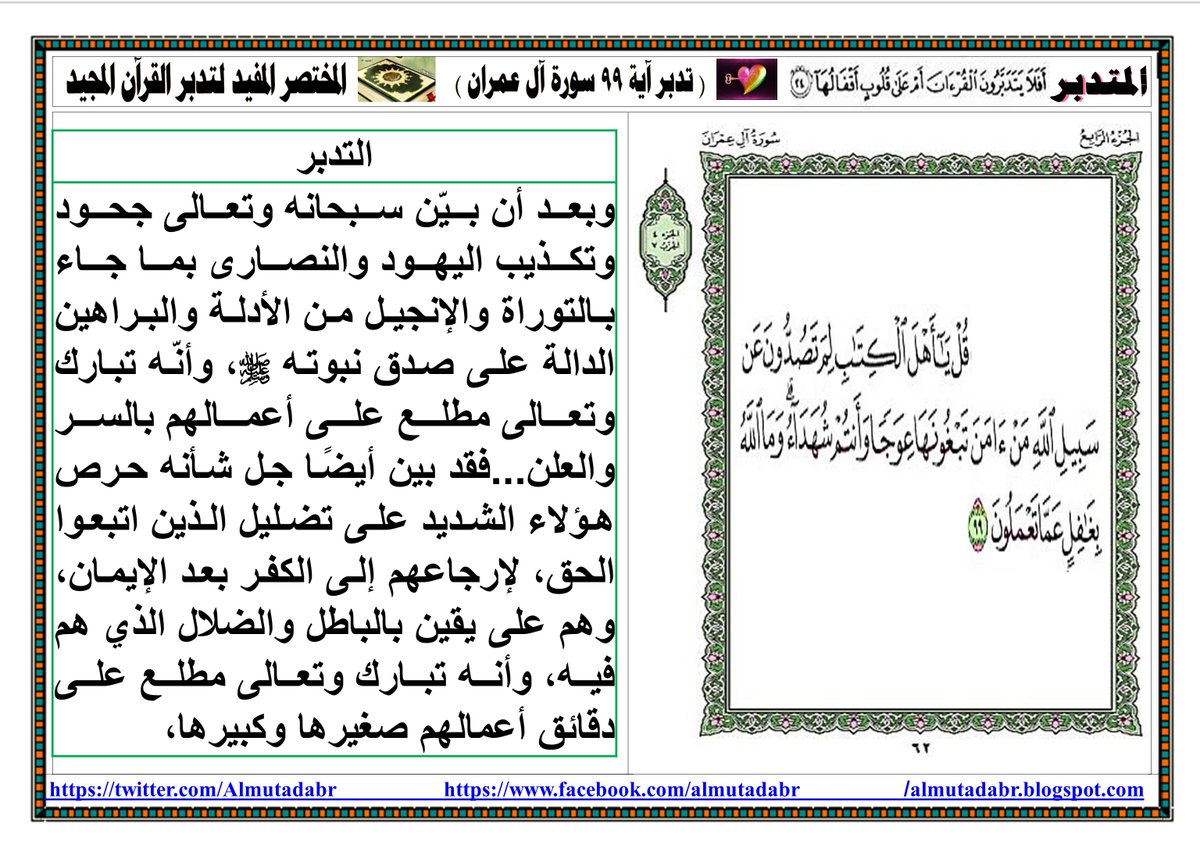 المتدبر أَفَلَا يَتَدَبَّرُونَ الْقُرْءَانَ أَمْ عَلَىٰ قُلُوبٍ أَقْفَالُهَا ٢٤ ( تدبر آية ٩٩ سورة آل عمران ) المختصر المفيد لتدبر القرآن المجيد
الجُزْءُ الرَّابِعُ سُورَةُ آلِ عِمْرَان
قُلْ يَٰٓأَهْلَ ٱلْكِتَٰبِ لِمَ تَصُدُّونَ عَن
سَبِيلِ ٱللَّهِ مَنْ ءَامَنَ تَبْغُونَهَا عِوَجًا وَأَنتُمْ شُهَدَآءُ ۗ وَمَا ٱللَّهُ
بِغَٰفِلٍ عَمَّا تَعْمَلُونَ ٩٩
٦٢
الجزء ٤
الحزب ٧
التدبر
وبعد أن بيّن سبحانه وتعالى جحود
وتكذيب اليهود والنصارى بما جاء
بالتوراة والإنجيل من الأدلة والبراهين
الدالة على صدق نبوته ﷺ، وأنّه تبارك
وتعالى مطلع على أعمالهم بالسر
والعلن...فقد بين أيضًا جل شأنه حرص
هؤلاء الشديد على تضليل الذين اتبعوا
الحق، لإرجاعهم إلى الكفر بعد الإيمان،
وهم على يقين بالباطل والضلال الذي هم
فيه، وأنه تبارك وتعالى مطلع على
دقائق أعمالهم صغيرها وكبيرها،
https://twitter.com/Almutadabr https://www.facebook.com/almutadabr /almutadabr.blogspot.com